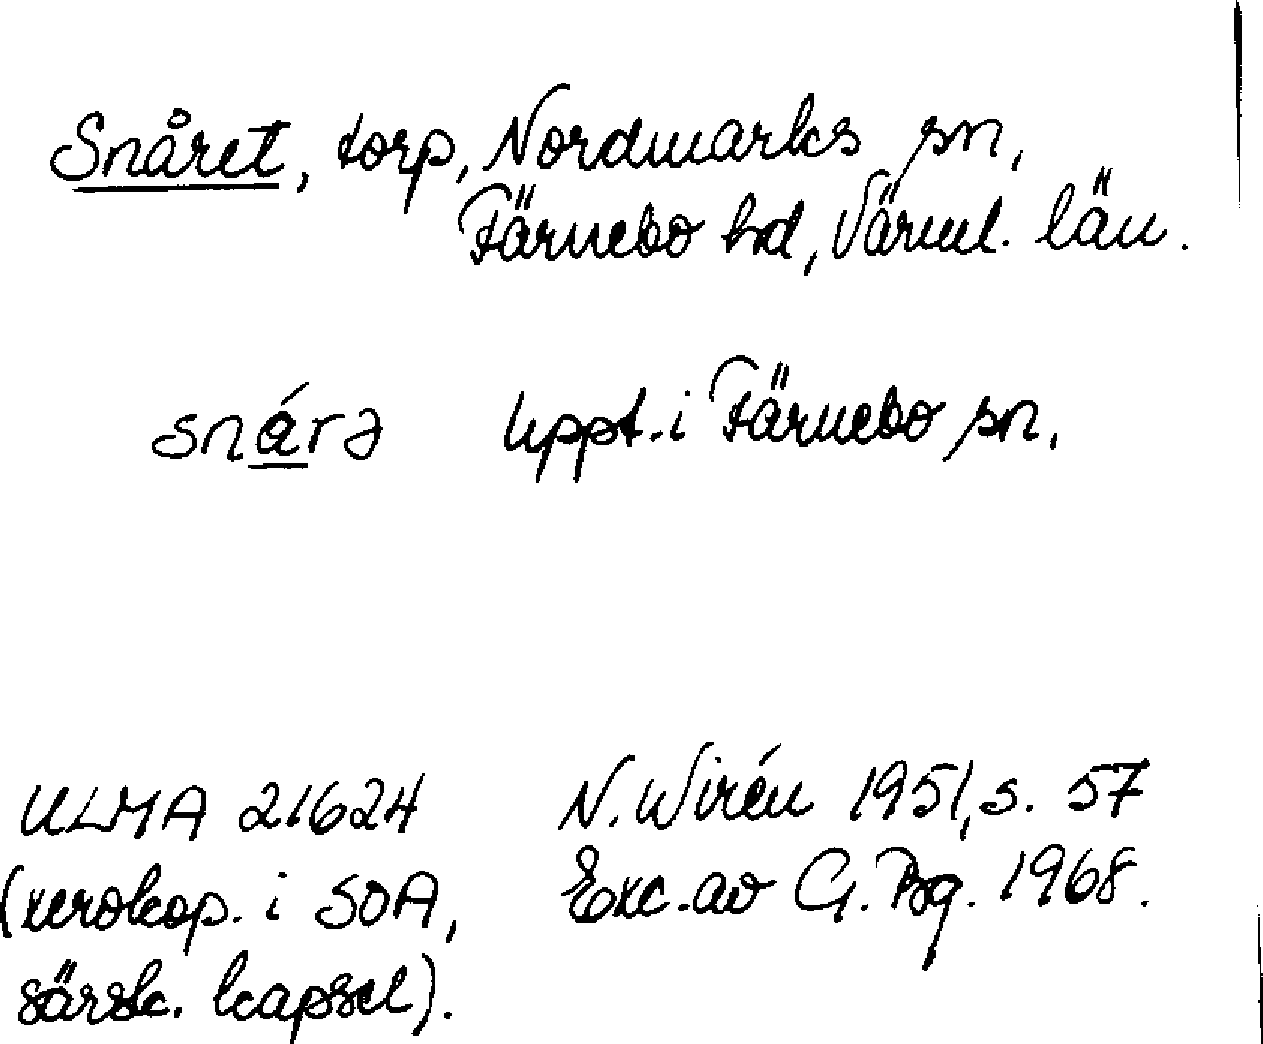 Snåret, torp, Nordmarks sn,
Färnebo hd, Värml. län.
snárə uppt. i Färnebo sn.
ULMA 21624 N. Wirén 1951, s. 57
(xerokop. i SOA, Exc. av G. Bg. 1968.
särsk. kapsel).